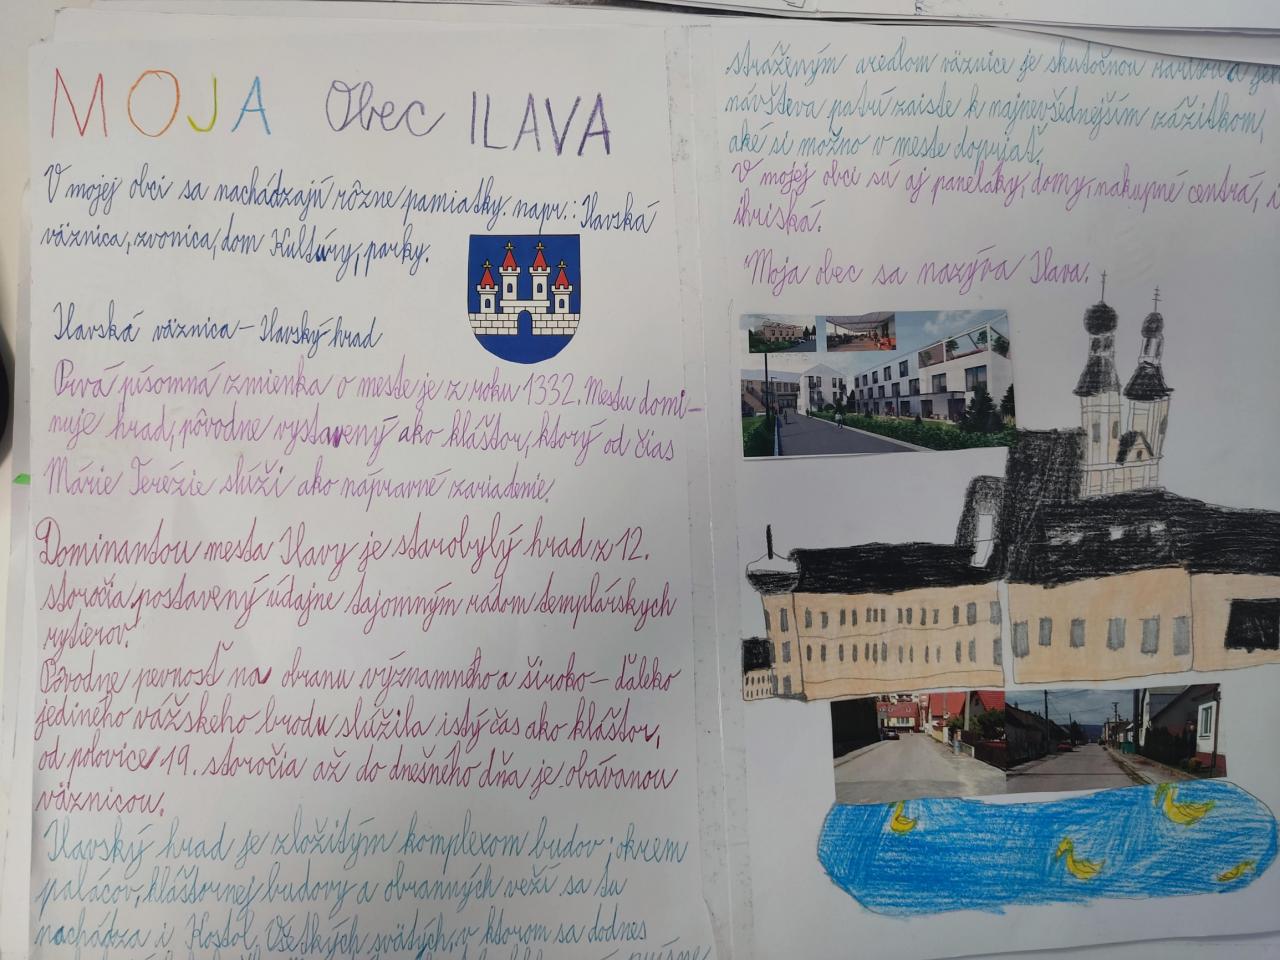 MOJA Obec ILAVA
V mojej obci sa nachádzajú rôzne pamiatky. napr.: Ilavská
väznica, zvonica, dom Kultúry, parky.
Ilavská väznica - Ilavský hrad
Prvá písomná zmienka o meste je z roku 1332. Mestu domi-
nuje hrad, pôvodne vystavený ako kláštor, ktorý od čias
Márie Terézie slúži ako nápravné zariadenie.
Dominantou mesta Ilavy je starobylý hrad z 12.
storočia postavený údajne tajomným rádom templárskych
rytierov.
Pôvodne pevnosť na obranu významného a široko-ďaleko
jediného vážskeho brodu slúžila istý čas ako kláštor,
od polovice 19. storočia až do dnešného dňa je obávanou
väznicou.
Ilavský hrad je zložitým komplexom budov; okrem
palácov, kláštornej budovy a obranných veží sa tu
nachádza i Kostol Všetkých svätých, v ktorom sa dodnes
stráženým areálom väznice je skutočnou raritou a jej
návšteva patrí zaiste k najnevšednejším zážitkom,
aké si možno v meste dopriať.
V mojej obci sú aj paneláky, domy, nakupné centrá, i
ihriská.
Moja obec sa nazýva Ilava.